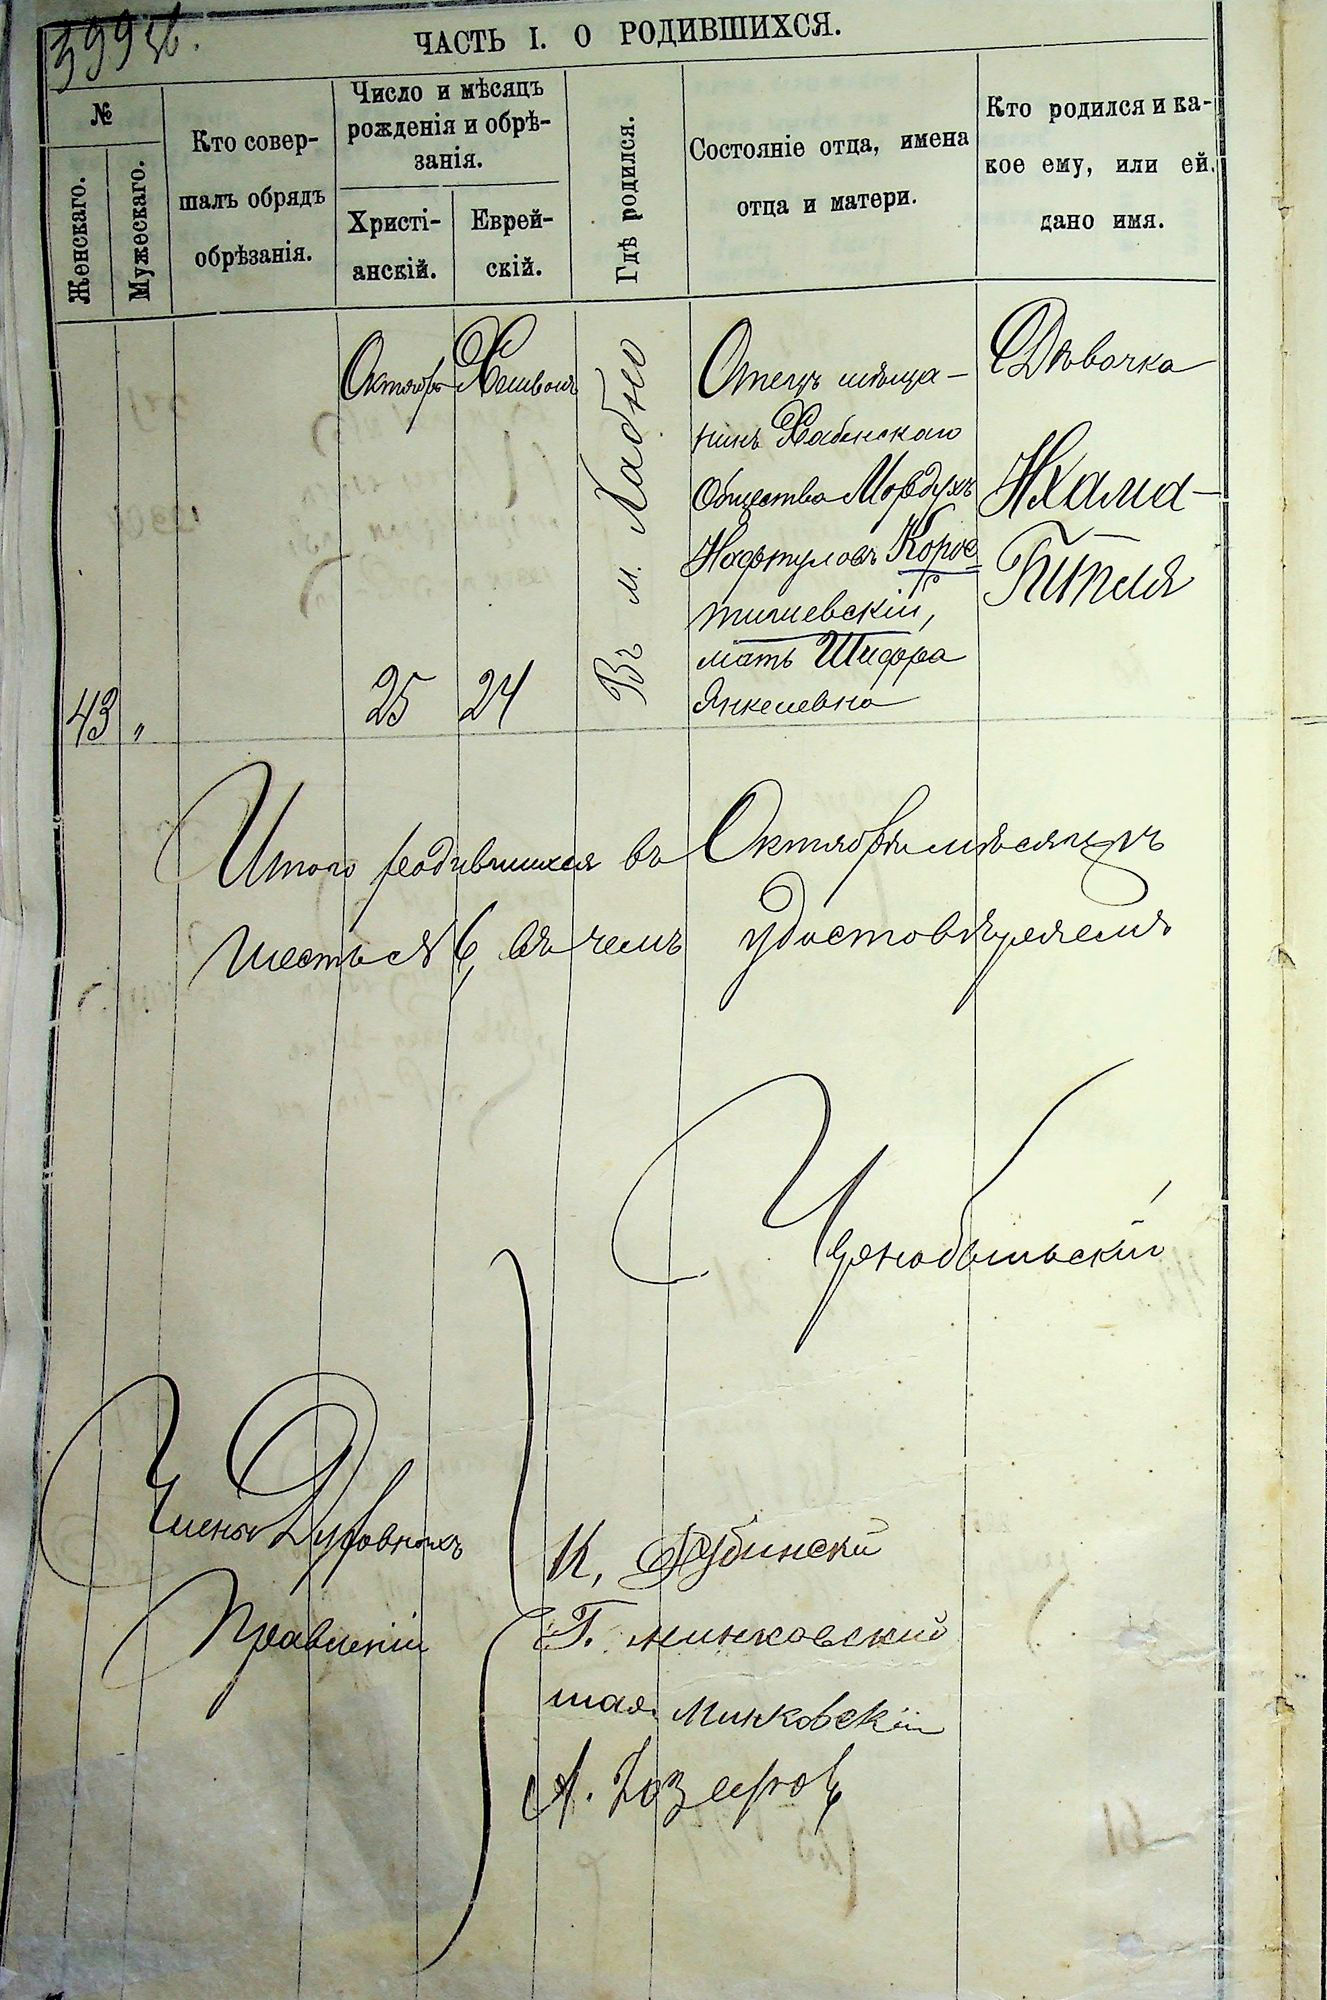 ЧАСТЬ I. О РОДИВШИХСЯ.
№
Женскаго.
Мужескаго.
Кто совер-
шалъ обрядъ
обрѣзанія.
Число и мѣсяцъ
рожденія и обрѣ-
занія.
Христі-
анскій.
Еврей-
скій.
Гдѣ родился.
Состояніе отца, имена
отца и матери.
Кто родился и ка-
кое ему, или ей.
дано имя.
43
"
Октябрь
25
Хешвонъ
24
Въ м. Хабно
Отецъ мѣща-
нинъ Хабенскаго
Общества Мордухъ
Нафтуловъ Корос
тишевскій,
мать Шифра
Янкелевна
Дѣвочка
Нхама-
Гитля
Итого родившихся въ Октябрѣ мѣсяцѣ
шесть № 6, въ чемъ удостовѣряемъ
Чернобыльскій
Члены Духовныхъ
Правленій
К, Дубински
Г. минковский
шая. Минковскій
А.